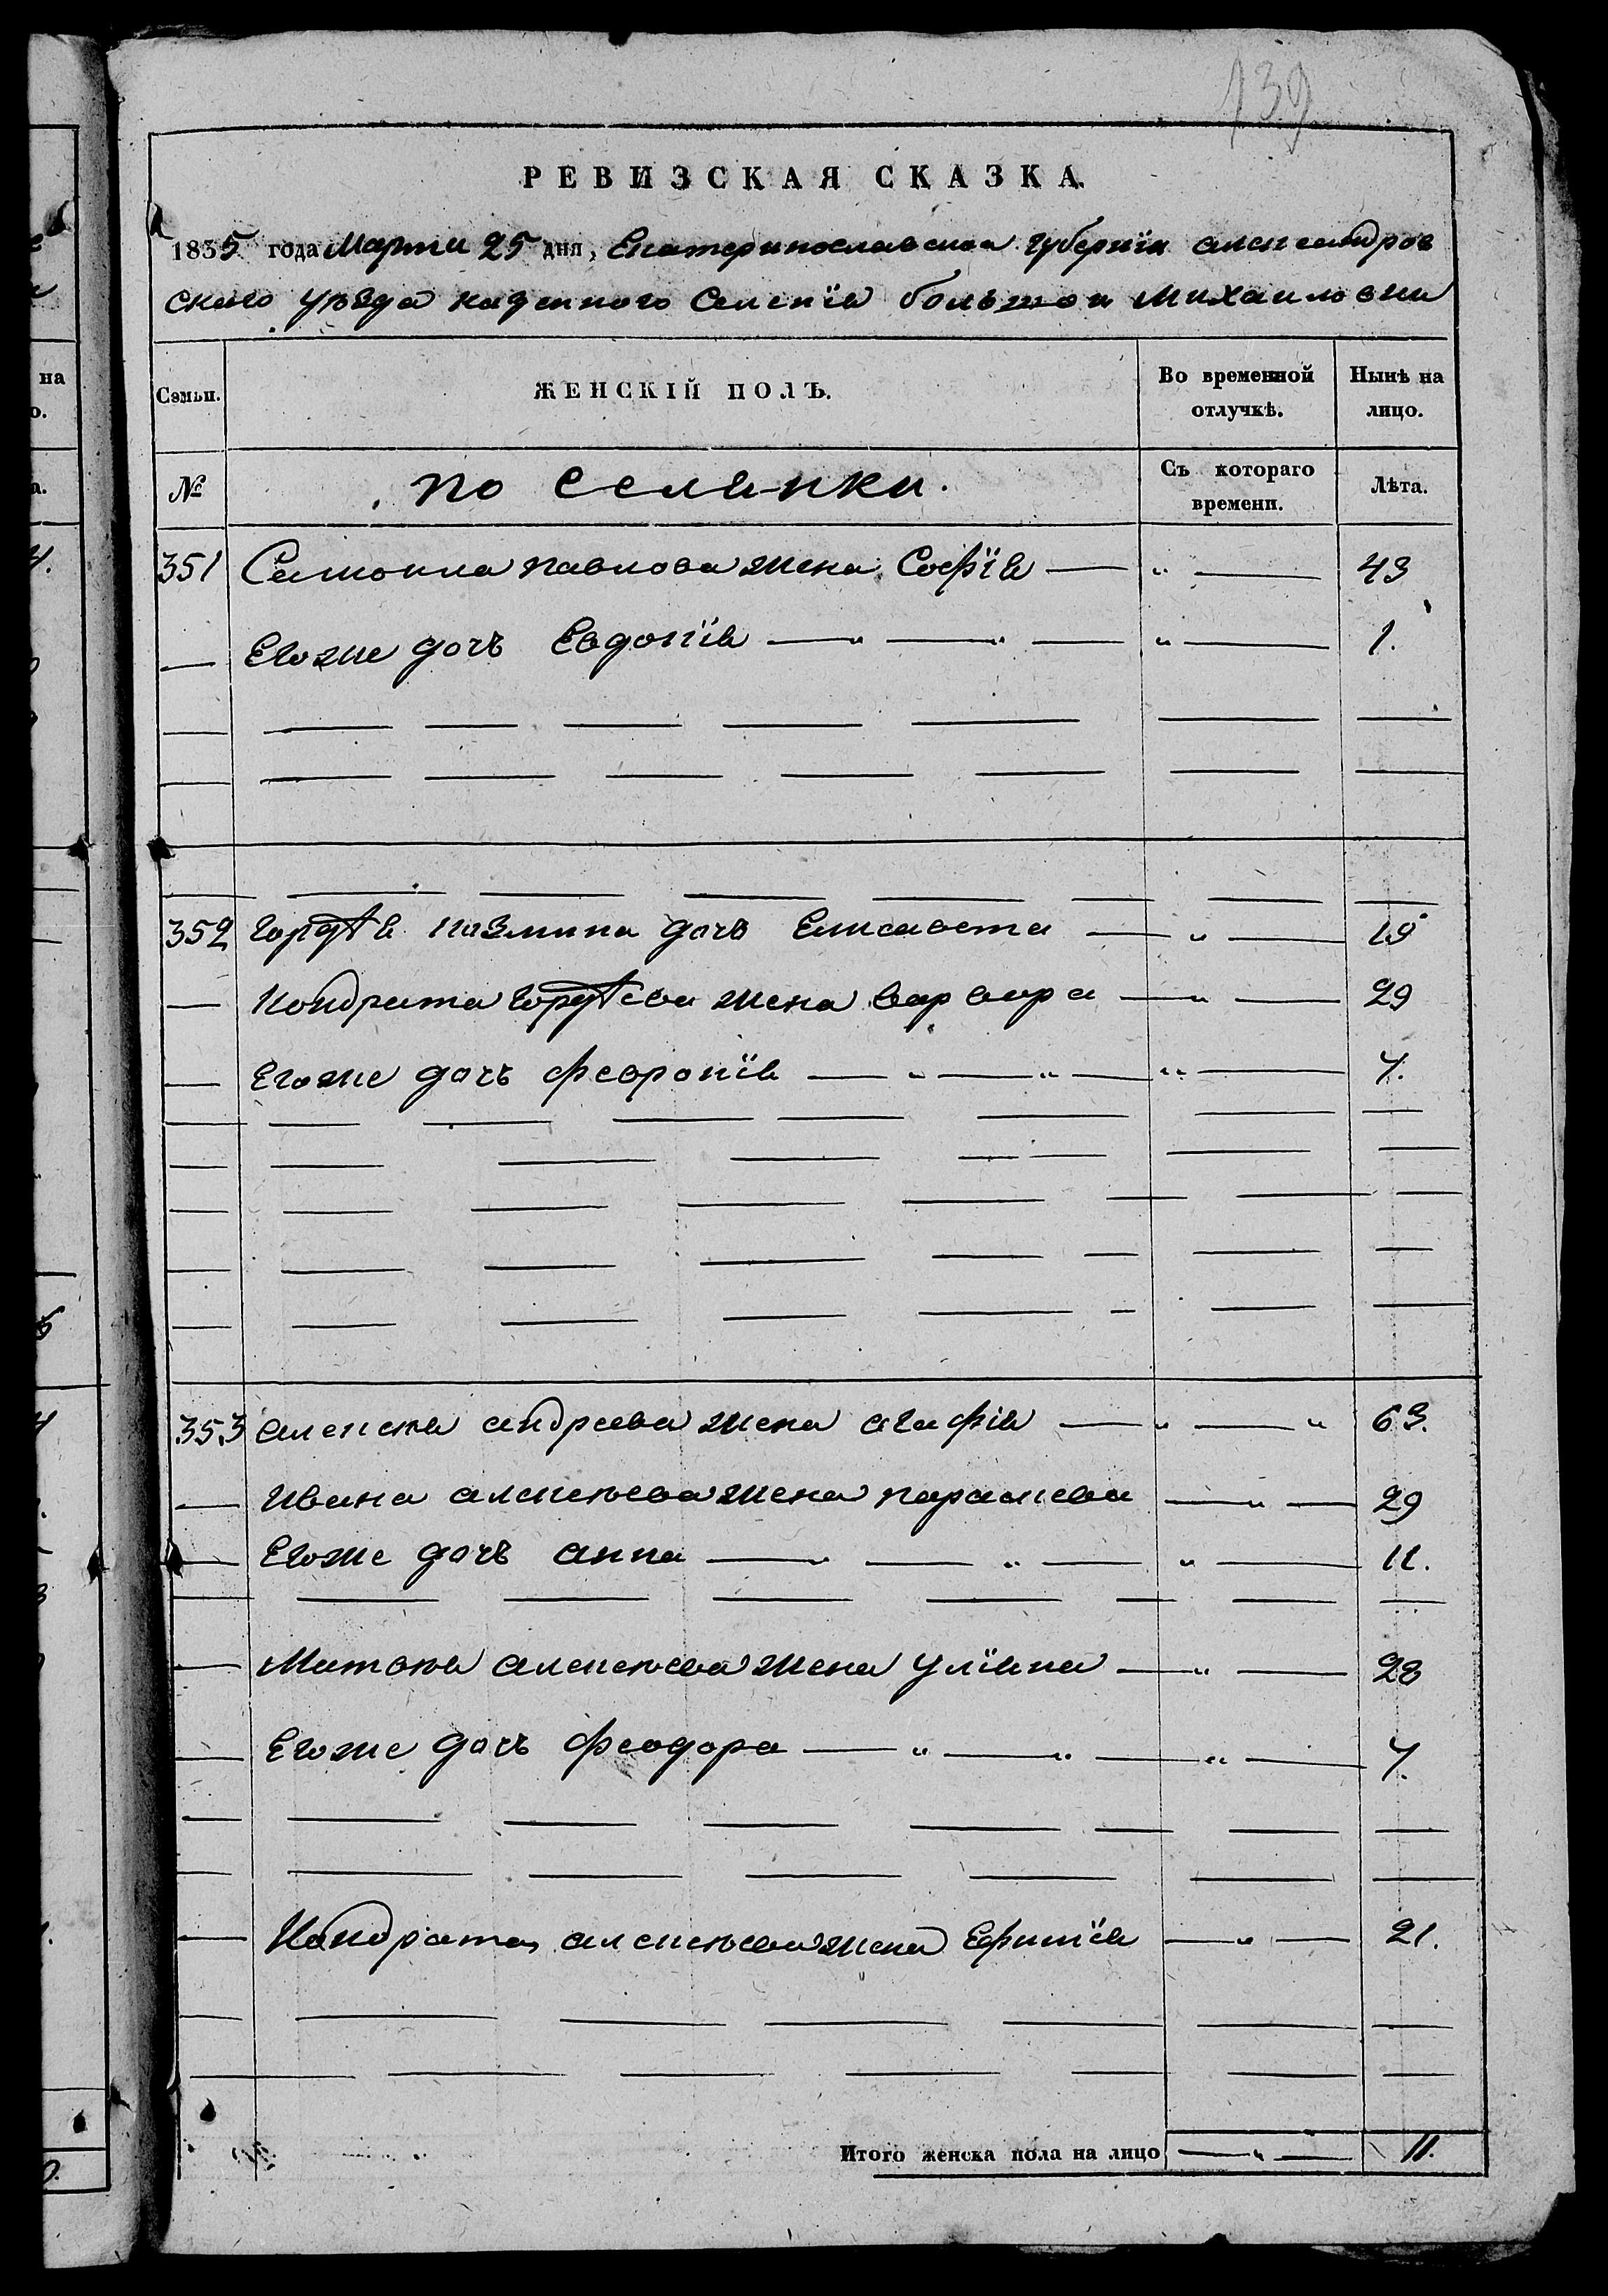 139
РЕВИЗСКАЯ СКАЗКА.
1835 года Марта 25 дня, Екатеринославской губернїи александров
ского уѣзда казенного Селенїя большой Михайловки
Семьи. ЖЕНСКІЙ ПОЛЪ. Во временной отлучкѣ. Нынѣ на лицо.
№ поселянки. Съ котораго времени. Лѣта.
351 Самойла павлова жена Софїя — „ — 43
Егоже дочь Евдокїя — „ — „ — „ — 1.
352 Гордѣя козмина дочь Елисавета — „ — 19
Кондрата Гордѣева жена варвара — „ — 29
Егоже дочь Феоронїя — „ — „ — „ — 7.
353 алексѣя андреева жена агафїя — „ — „ 63.
Ивана алексѣева жена параскева — „ — 29
Егоже дочь анна — „ — „ — „ — 11.
Матвѣя алексѣева жена улїяна — „ — 28
Егоже дочь Феодора — „ — „ — „ — 7.
Кондрата алексѣева жена Ефимїя — „ — 21.
Итого женска пола на лицо — „ — 11.